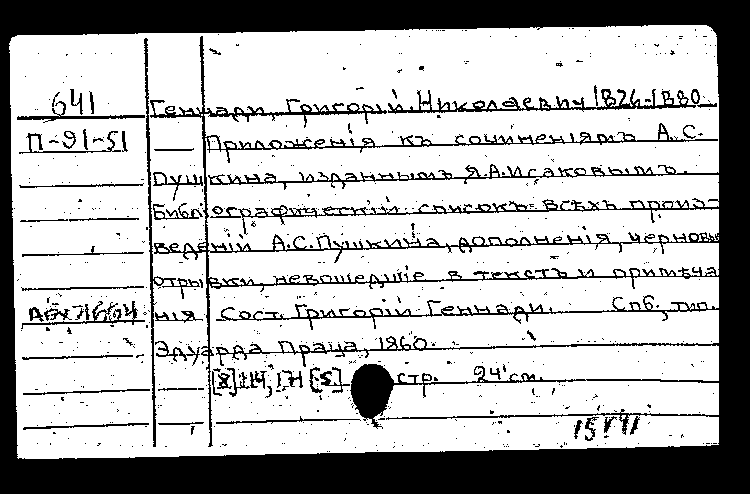 641
Геннади, Григорій Николаевич 1826-1880.
П-91-51
Приложенія къ сочиненіямъ А.С.
Пушкина, изданнымъ Я.А.Исаковымъ.
Библіографическій списокъ всѣхъ произ-
веденій А.С.Пушкина, дополненія, черновые
отрывки, невошедшіе в текстъ и примѣча
нія Сост. Григорій Геннади. Спб., тип.
Эдуарда Праца, 1860.
стр. 24 см.
15 V 41